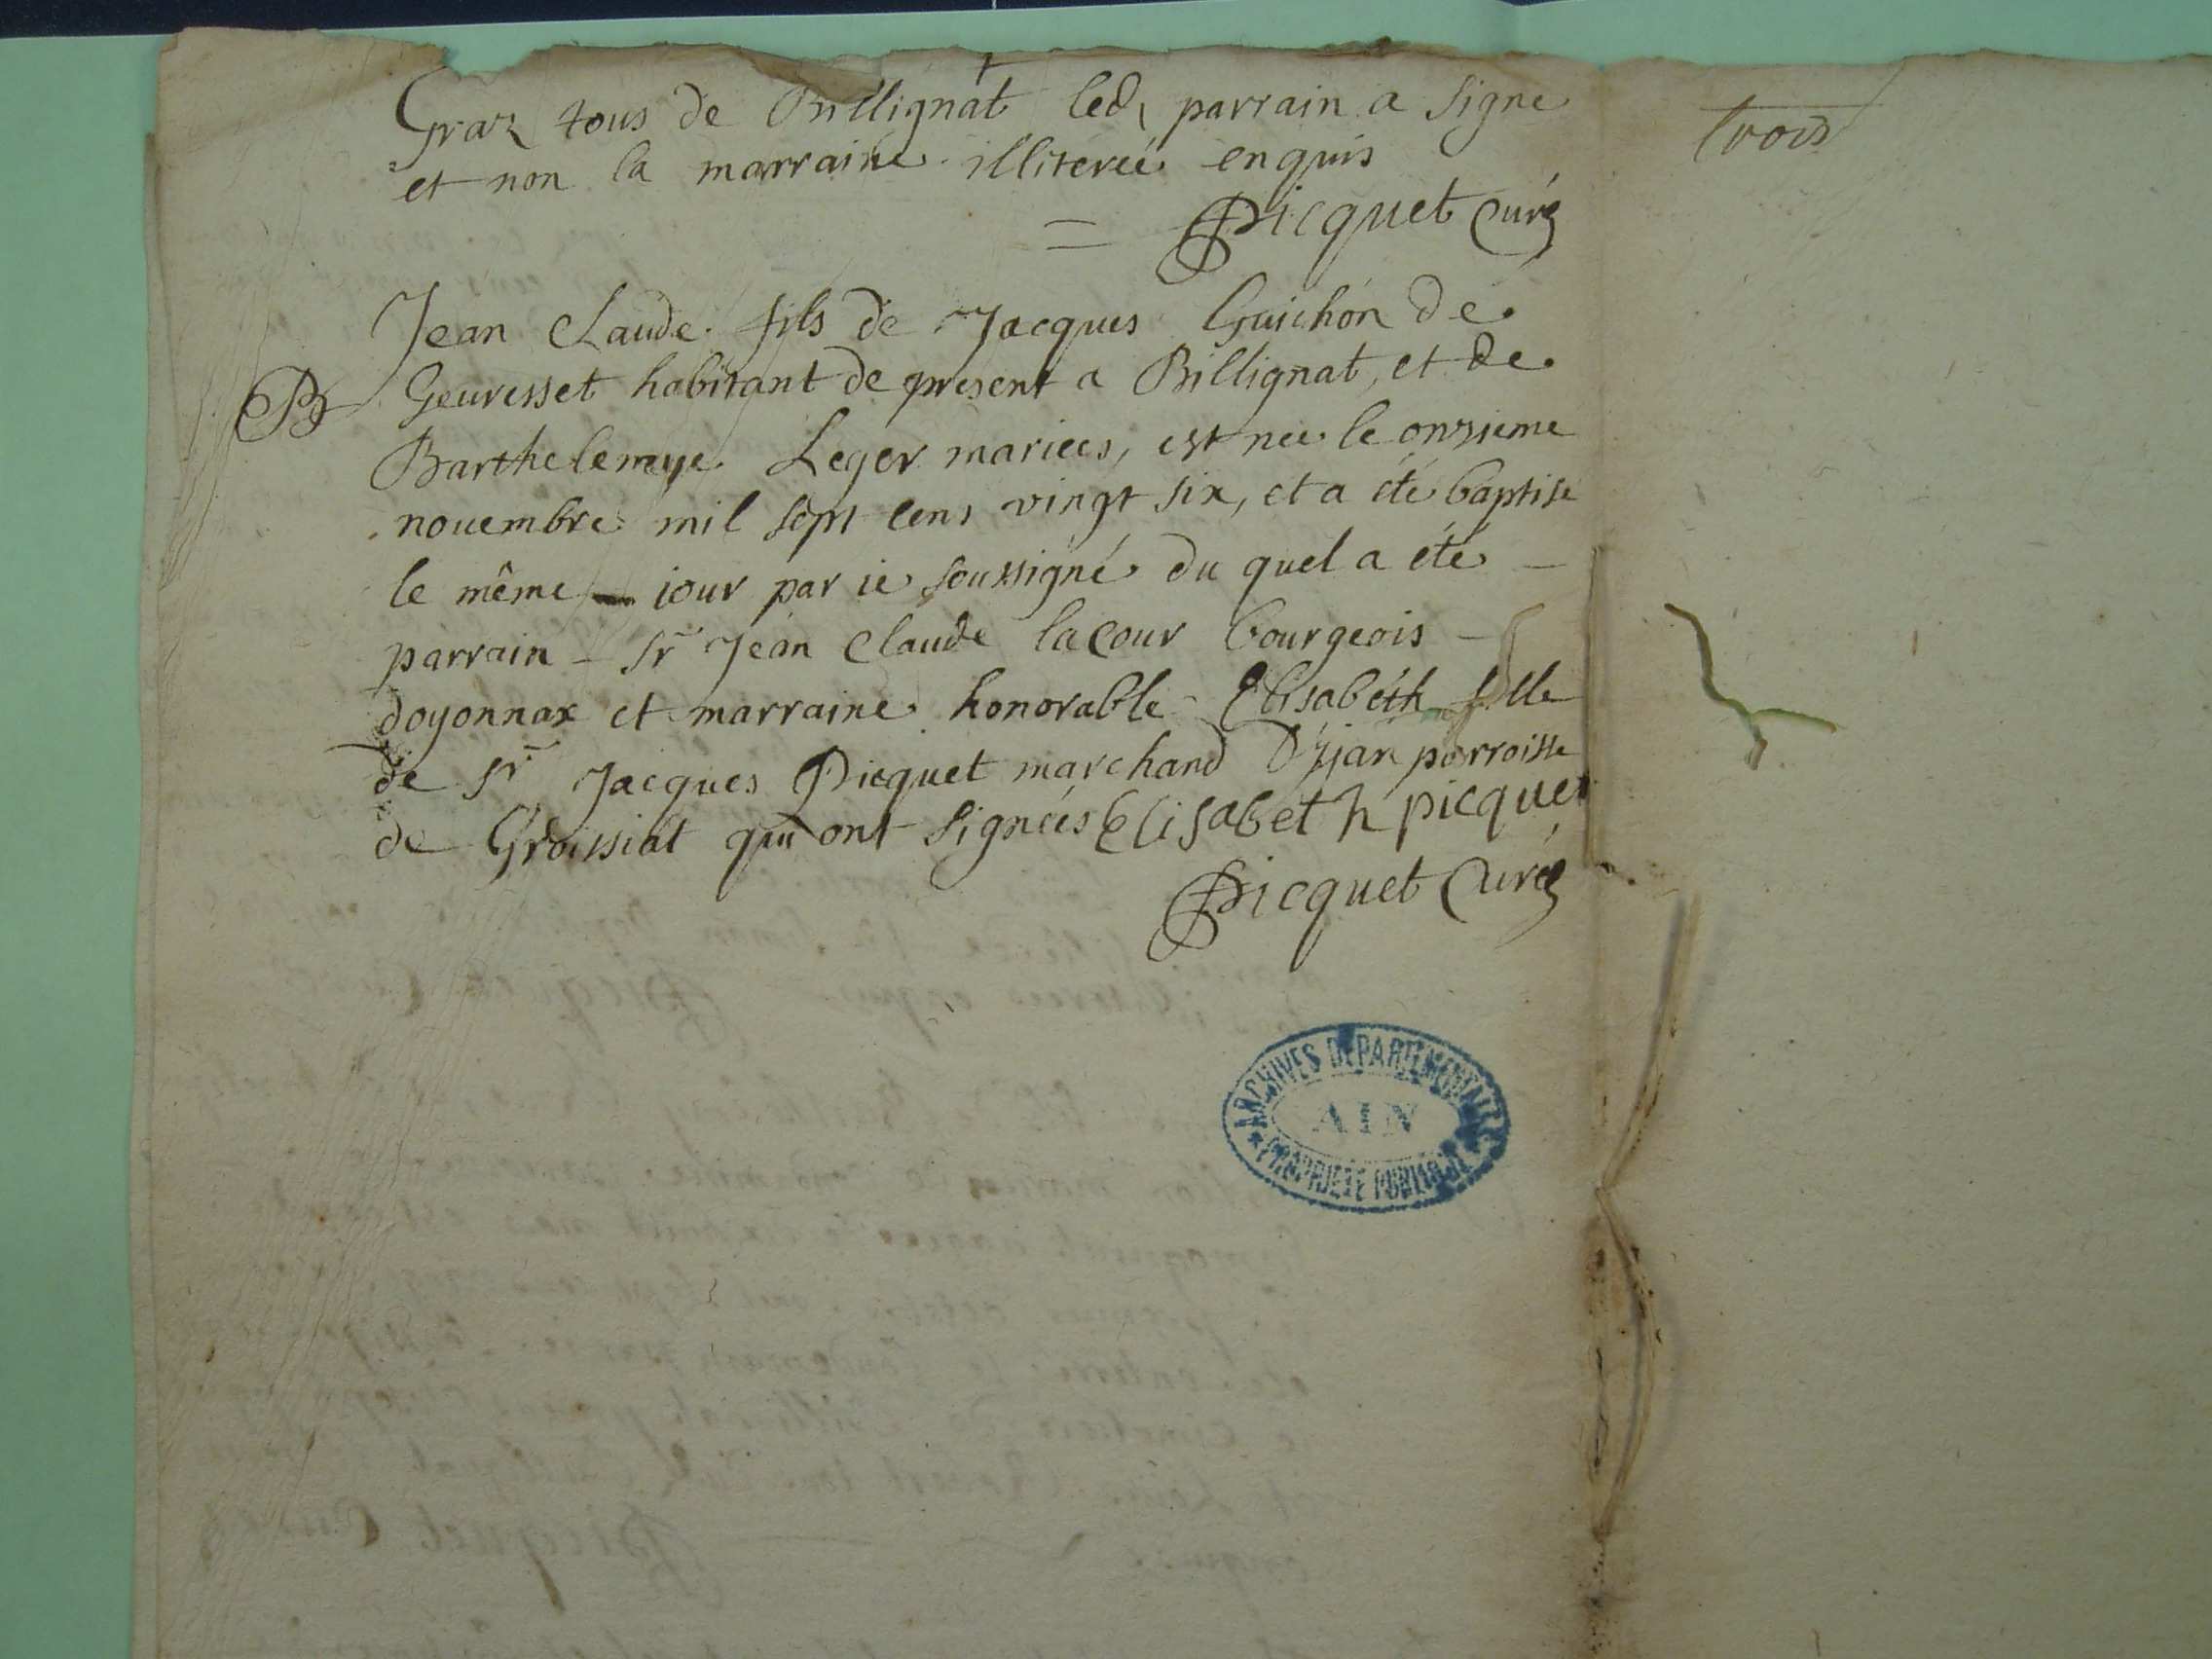 Graz tous de Billignat led, parrain a signe
et non la marraine illiterée enquis
= Picquet Curé
Jean Claude fils de Jacques Guichon de
B Geuresset habitant de present a Billignat, et de
Barthelemye Leger mariees, est nee le onzieme
nouembre mil sept cens vingt six, et a été baptise
le même jour par ie soussigné du quel a été
parrain - Sr Jean Claude lacour bourgeois -
doyonnax et marraine honorable Elisabeth fille
de Sr Jacques Picquet marchand parroisse
de Groissiat qui ont signées Elisabeth picquet
Picquet Curé
trois
ARCHIVES DEPARTEMENTALES
AIN
* PROPRIETE PUBLIQUE *